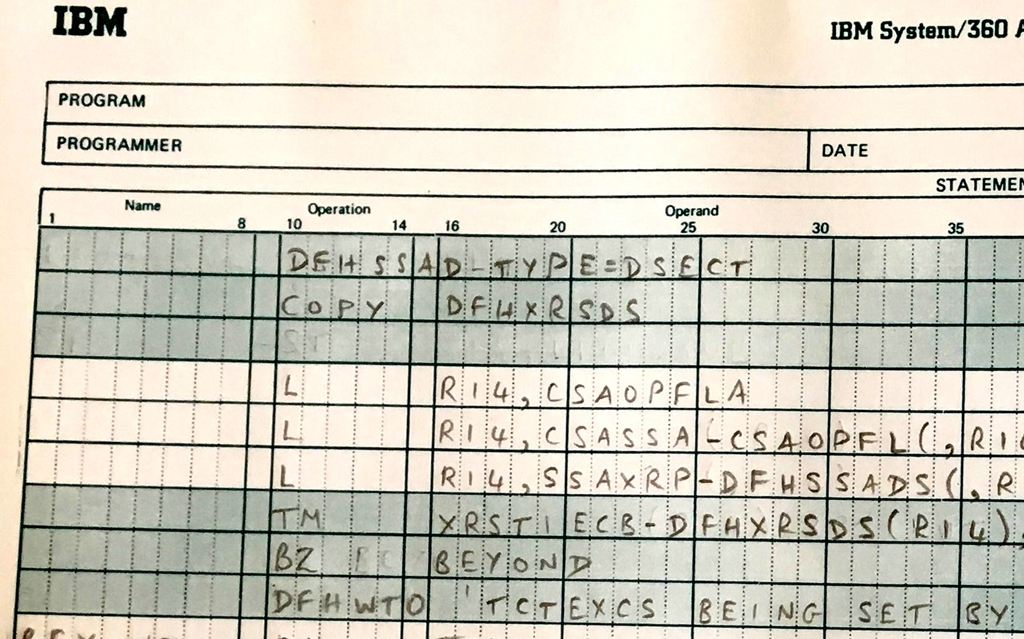 IBM
IBM System/360
PROGRAM
PROGRAMMER DATE
STATEMEN
Name Operation Operand
1 8 10 14 16 20 25 30 35
DFHSSAD-TYPE=DSECT
COPY DFHXRSDS
L R14,CSAOPFLA
L R14,CSASSA-CSAOPFL(,R1
L R14,SSAXRP-DFHSSADS(,R
TM XRST1ECB-DFHXRSDS(R14),
BZ BEYOND
DFHWTO 'TCTEXCS BEING SET BY